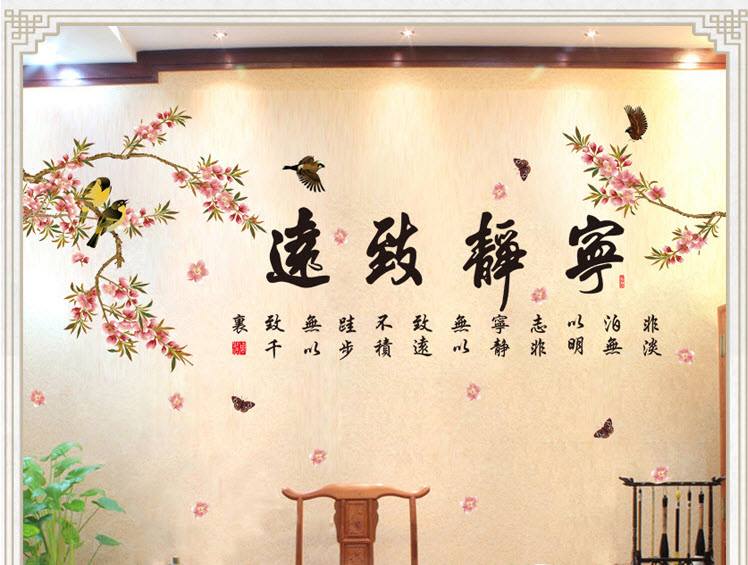 寧靜致遠
非淡
泊無
以明
志非
寧静
無以
致遠
不積
跬步
無以
致千
裏